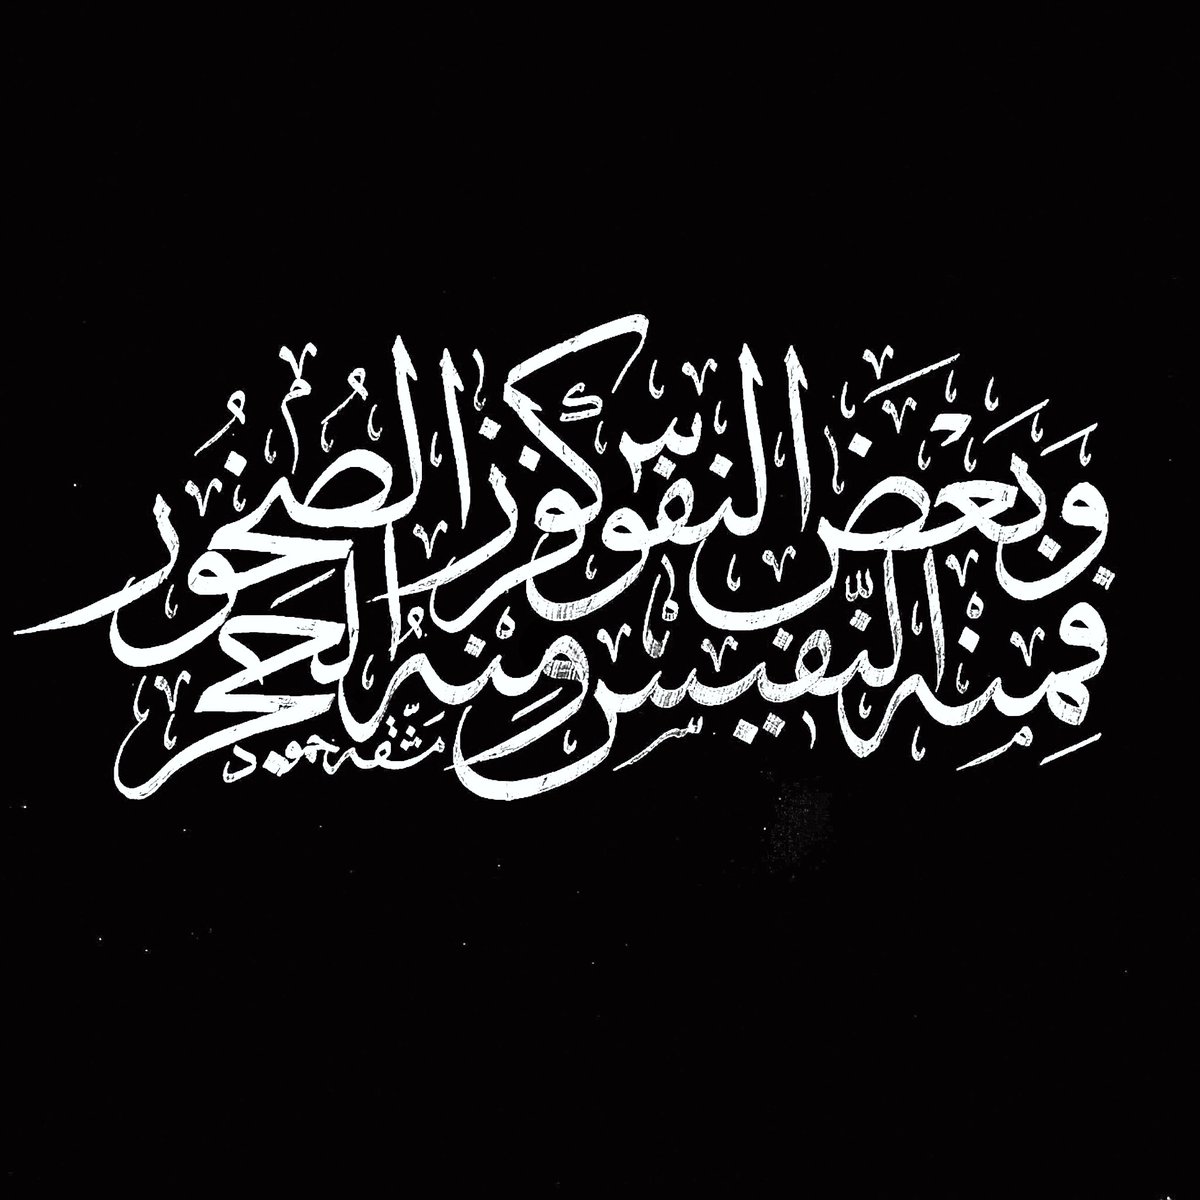 وَبَعْضَ النفوس كفرز الصُخُور
فمِنه النَّفيس ومِنهُ الحَجر
مَشَّقه حمود